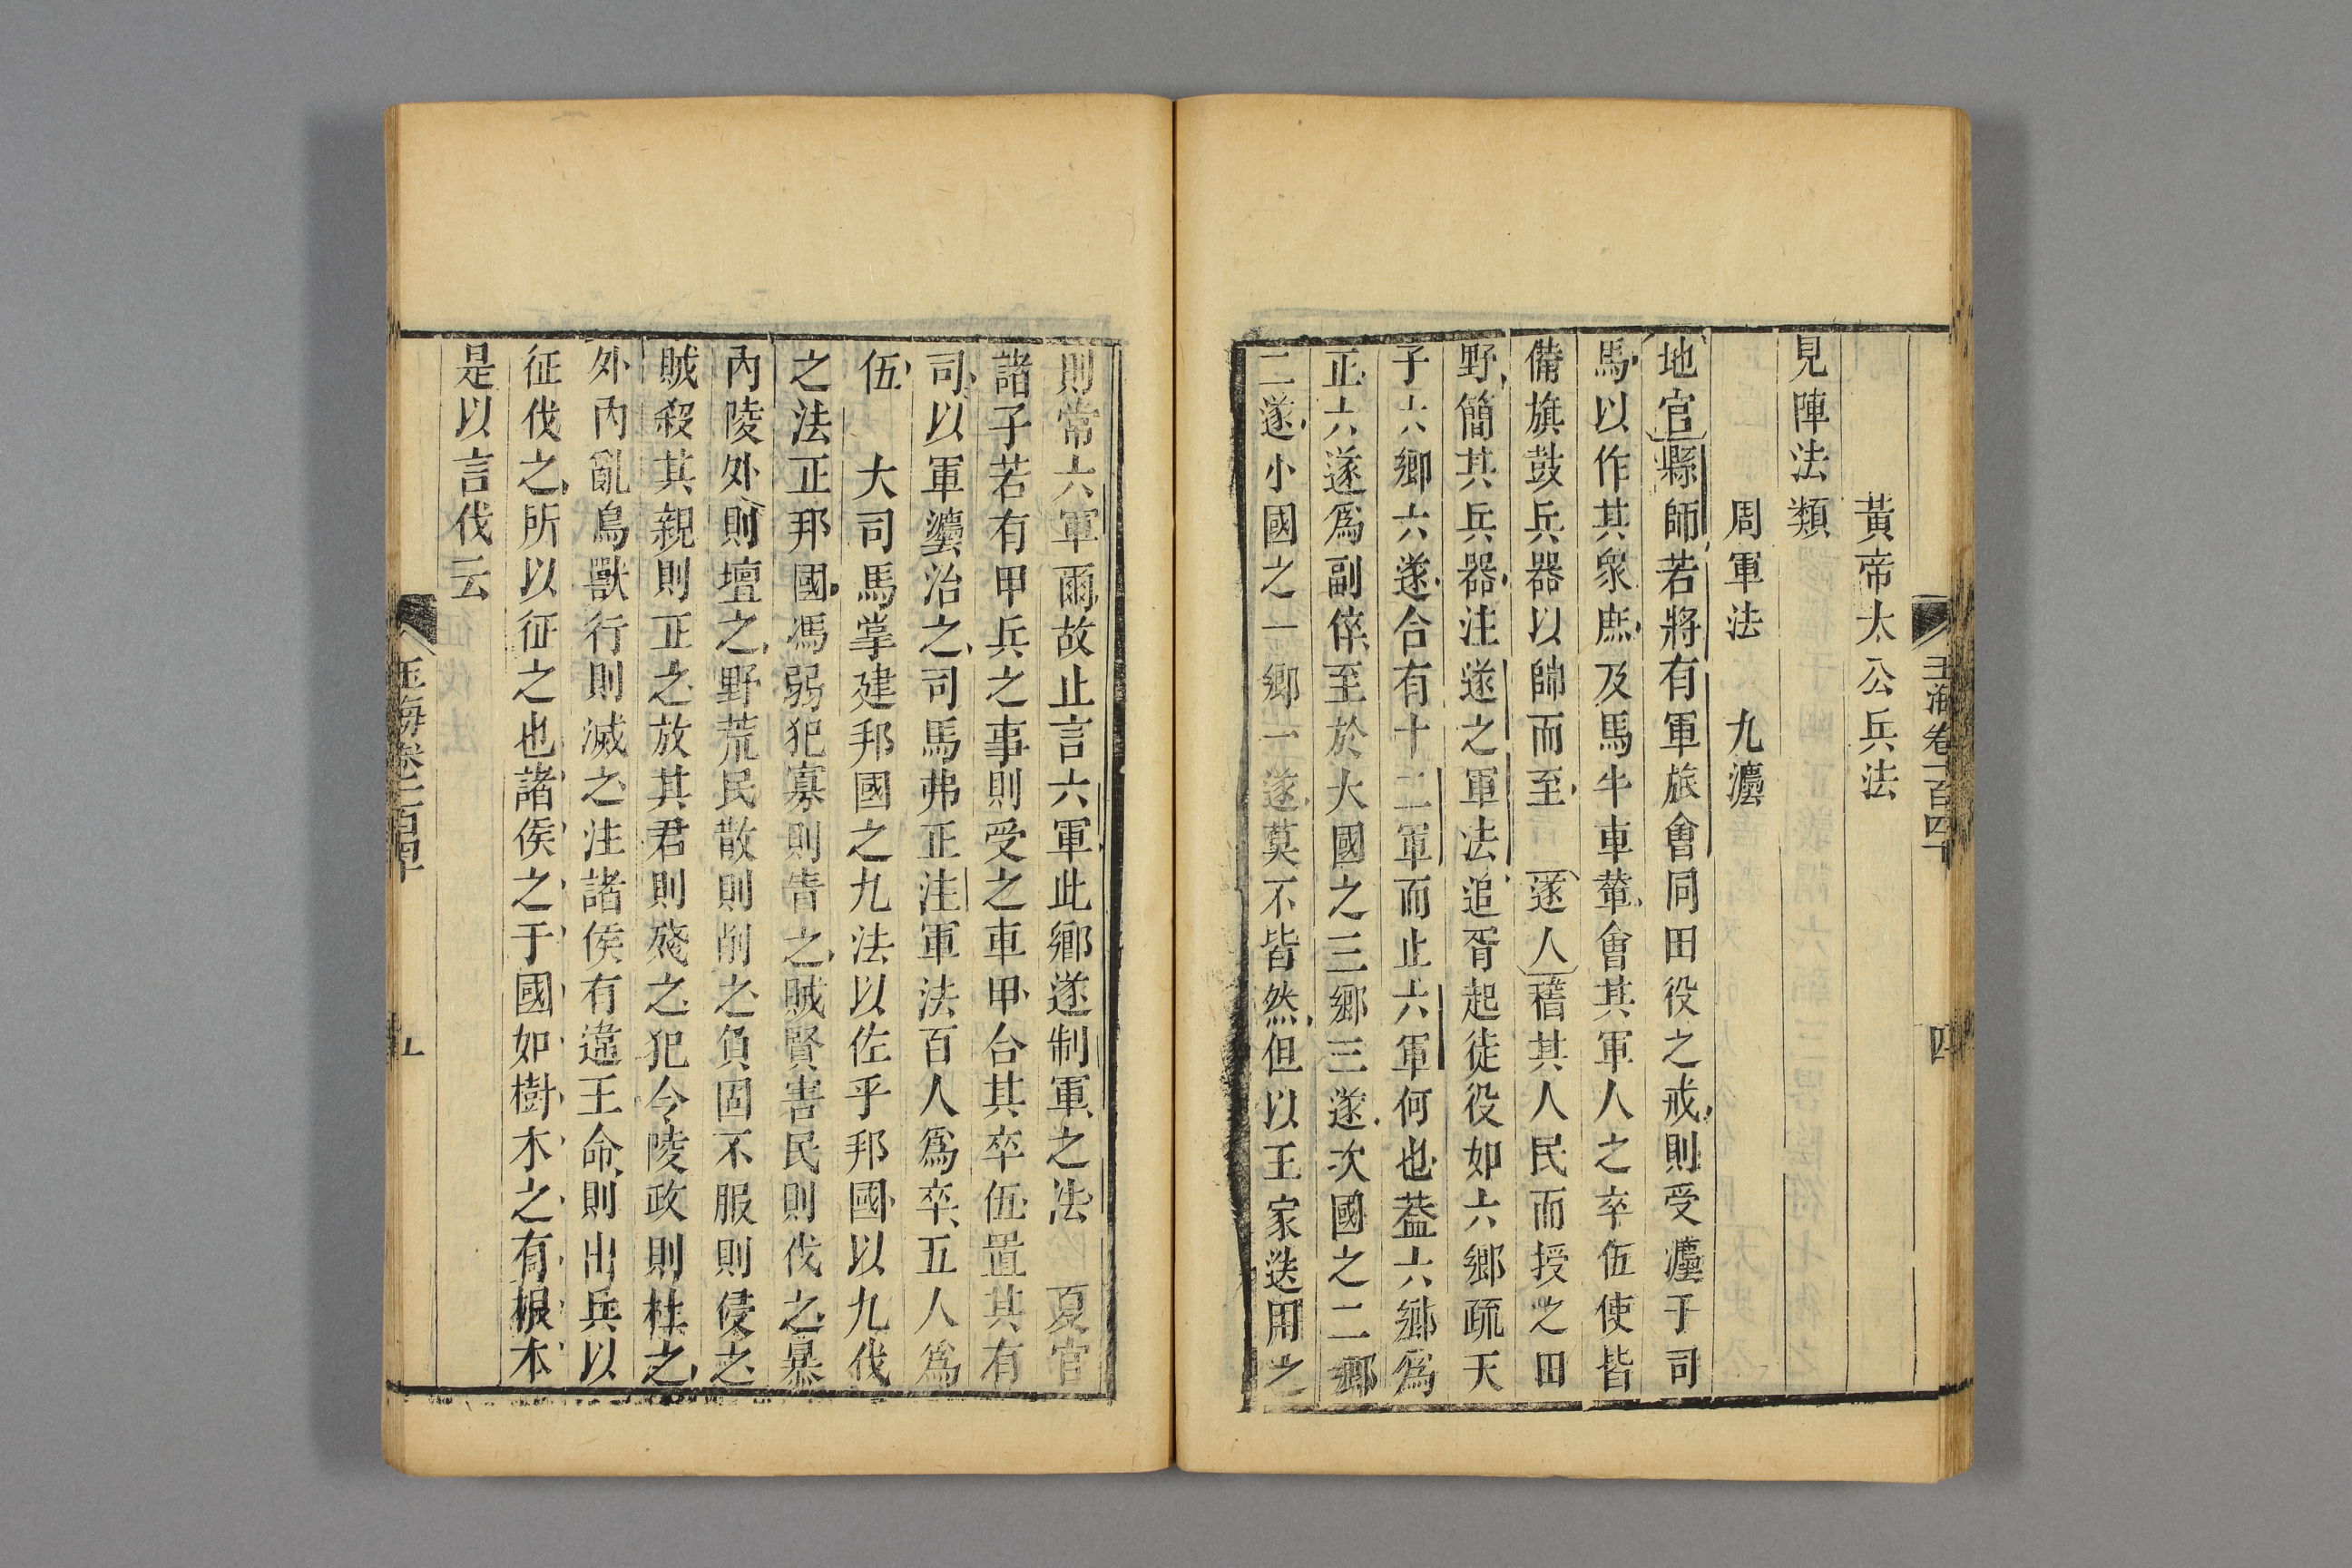 玉海卷一百四十
四
黃帝太公兵法
見陣法類
周軍法　九灋
地官縣師若將有軍旅會同田役之戒則受灋于司
馬以作其衆庶及馬牛車輦會其軍人之卒伍使皆
備旗鼓兵器以帥而至　遂人稽其人民而授之田
野簡其兵器注遂之軍法追胥起徒役如六鄉疏天
子六鄉六遂合有十二軍而止六軍何也葢六鄉爲
正六遂爲副倅至於大國之三鄉三遂次國之二鄉
二遂小國之一鄉一遂莫不皆然但以王家迭用之
則常六軍爾故止言六軍此鄉遂制軍之法　夏官
諸子若有甲兵之事則受之車甲合其卒伍置其有
司以軍灋治之司馬弗正注軍法百人爲卒五人爲
伍　大司馬掌建邦國之九法以佐乎邦國以九伐
之法正邦國馮弱犯寡則眚之賊賢害民則伐之暴
內陵外則壇之野荒民散則削之負固不服則侵之
賊殺其親則正之放其君則殘之犯令陵政則杜之
外內亂鳥獸行則滅之注諸侯有違王命則出兵以
征伐之所以征之也諸侯之于國如樹木之有根本
是以言伐云
玉海卷一百四十
五